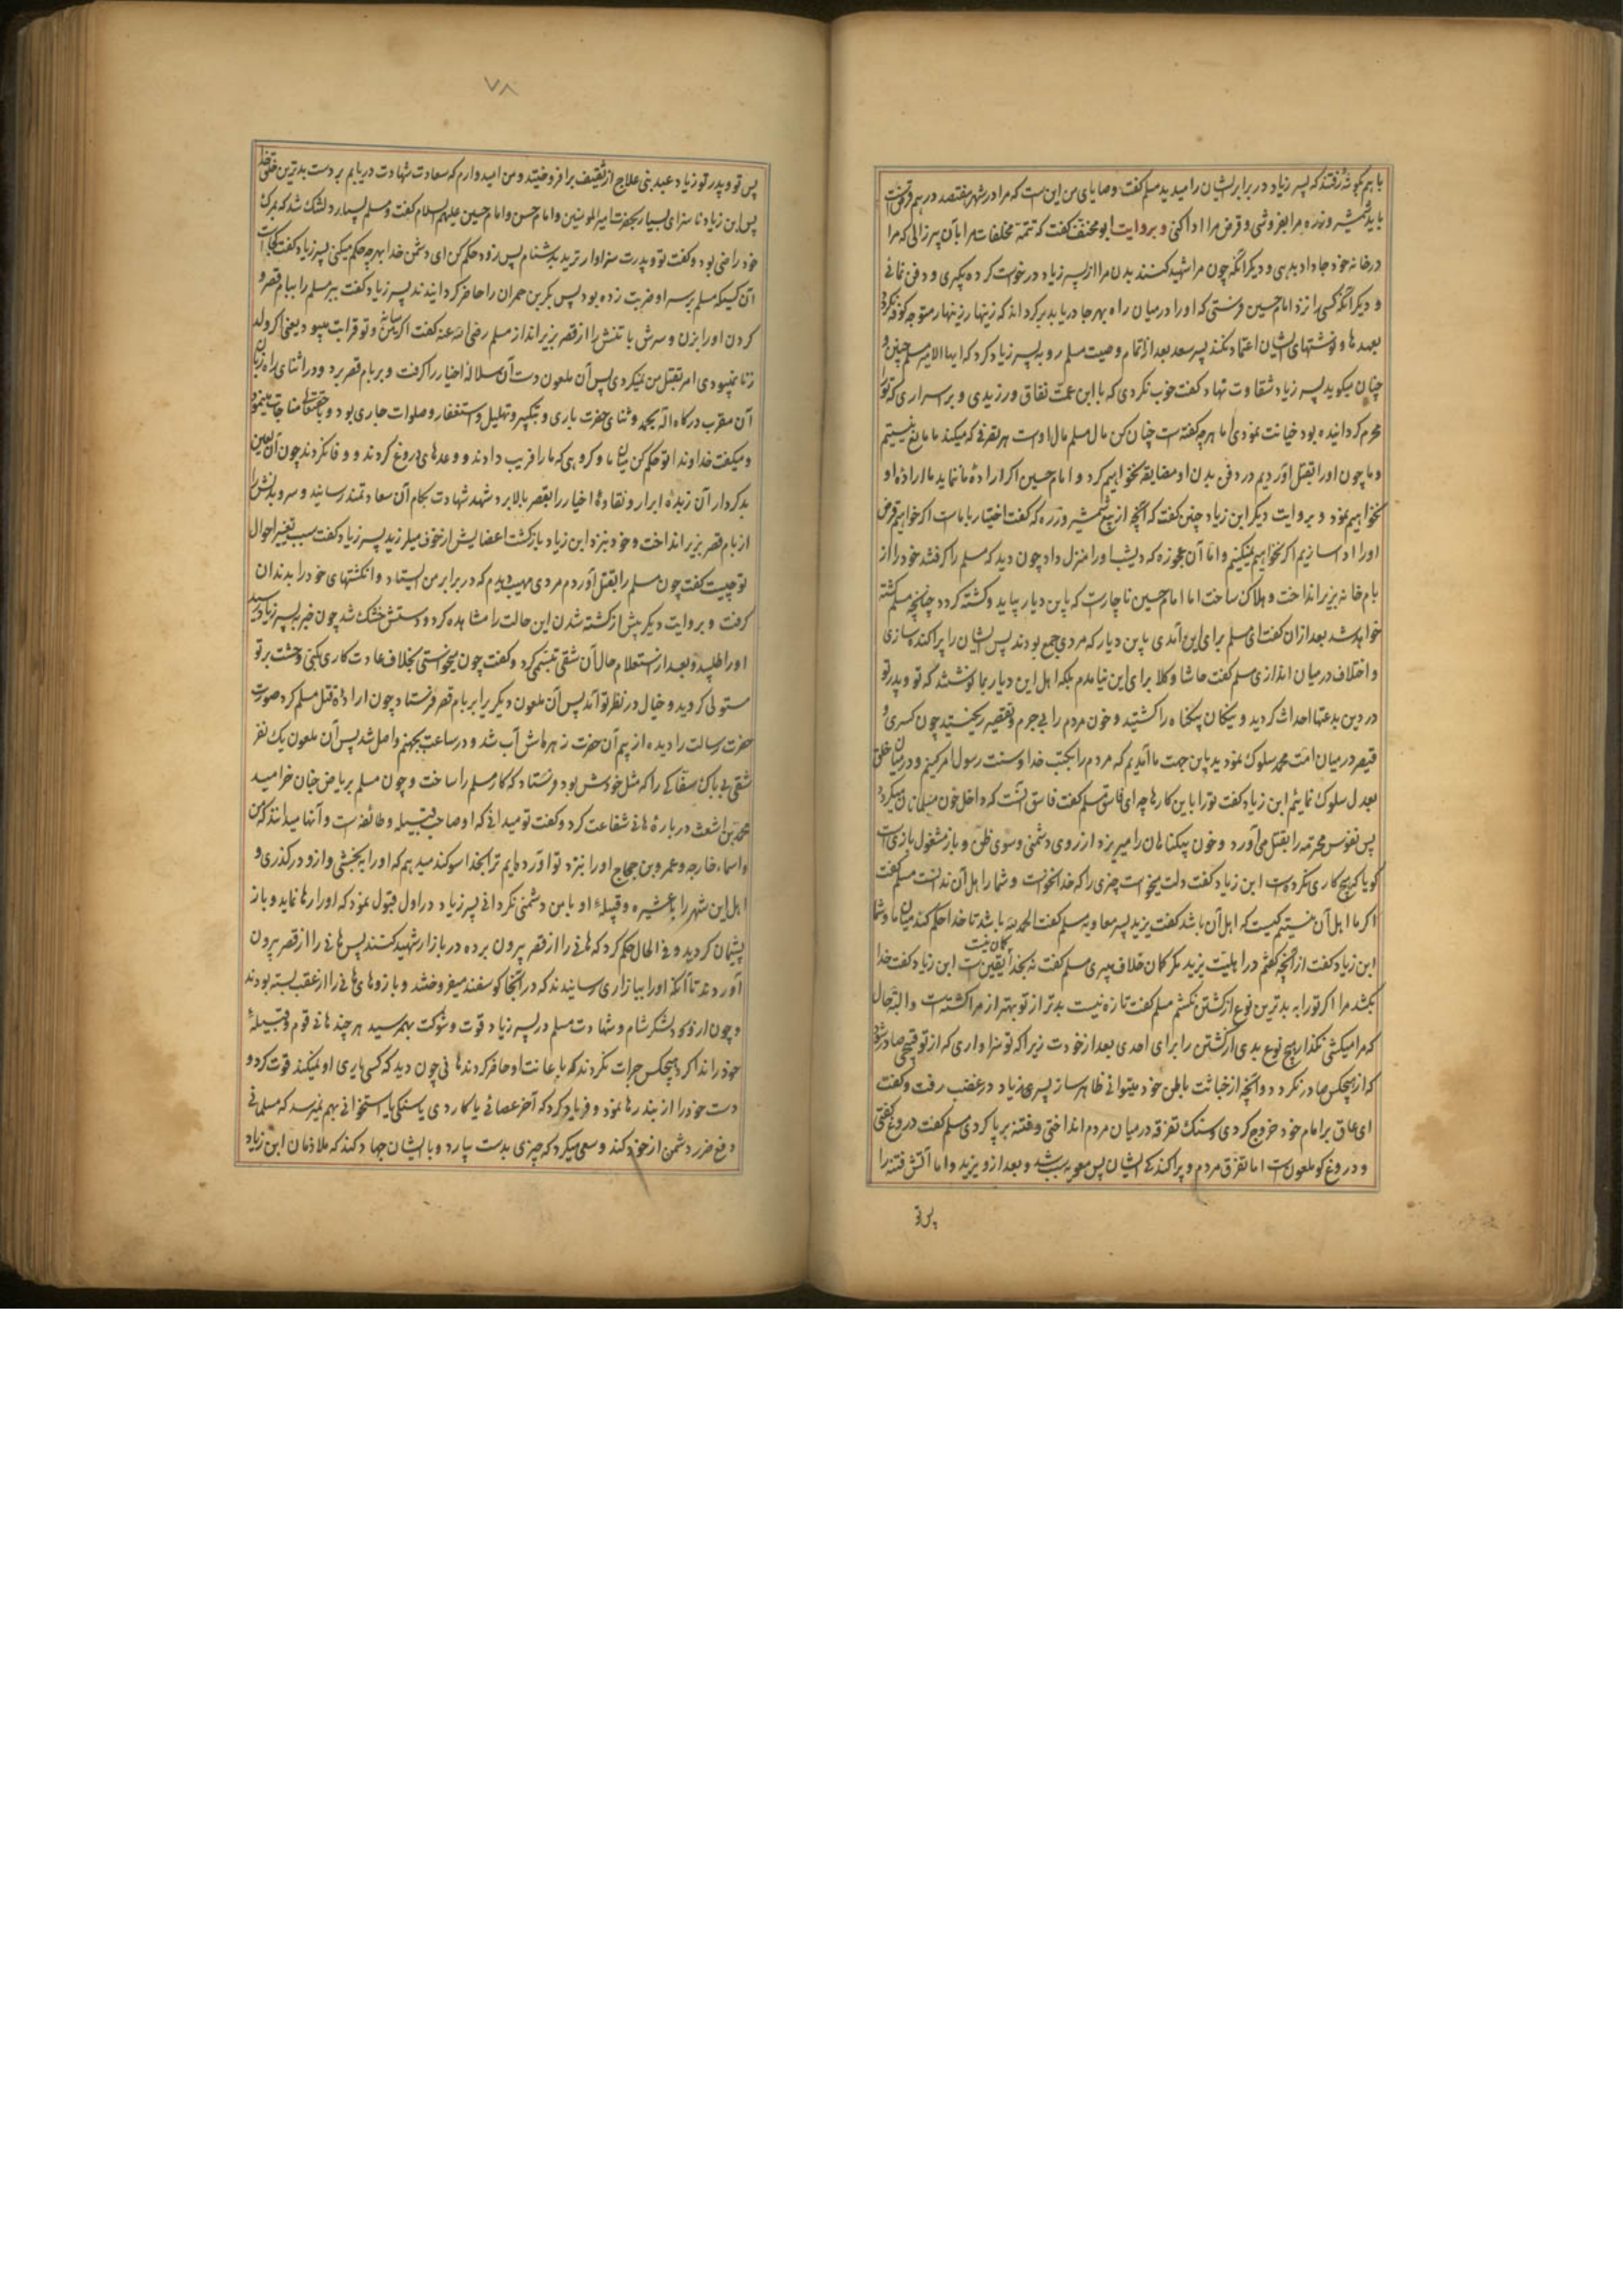 با هم بگوشه رفتند که پسر زیاد در برابر ایشان را میدید مسلم گفت وصایای من این است که مرا در شهر هفتصد درهم قرض است
باید شمشیر و زره مرا بفروشی و قرض مرا ادا کنی و بروایت ابو مخنف گفت که تتمه مخلفات مرا بآن پیرزالی که مرا
در خانه خود جا داد بدهی و دیگر آنکه چون مرا شهید کنند بدن مرا از پسر زیاد درخواست کرده بگیری و دفن نمائی
و دیگر آنکه کسی را نزد امام حسین فرستی که او را در میان راه بهر جا دریابد برگرداند که زینهار زینهار متوجه کوفه نگردد
بعهدها و نوشتهای ایشان اعتماد نکند پسر سعد بعد از اتمام وصیت مسلم رو به پسر زیاد کرد که ایها الامیر مسلم چنین و
چنان میگوید پسر زیاد شقاوت نهاد گفت خوب نکردی که با ابن عمت نفاق ورزیدی و بر اسراری که تو را
محرم گردانیده بود خیانت نمودی اما هر چه گفته است چنان کن مال مسلم مال اوست هر تصرفی که میکند ما مانع نیستیم
و ما چون او را بقتل آوردیم در دفن بدن او مضایقه نخواهیم کرد و امام حسین اگر اراده ما ننماید ما اراده او
نخواهیم نمود و بروایت دیگر ابن زیاد چنین گفت که آنچه از بیع شمشیر و زره که گفت اختیار با ماست اگر خواهیم قرض
او را ادا سازیم اگر نخواهیم نمیکنیم و اما آن عجوزه که دیشب او را منزل داد چون دید که مسلم را گرفتند خود را از
بام خانه بزیر انداخت و هلاک ساخت اما امام حسین ناچار است که باین دیار بیاید و کشته گردد چنانچه مسلم کشته
خواهد شد بعد از آن گفت ای مسلم برای این آمدی باین دیار که مردمی جمع بودند پس ایشان را پراکنده سازی
و اختلاف در میان اندازی مسلم گفت حاشا و کلا برای این نیامدم بلکه اهل این دیار بما نوشتند که تو و پدر تو
در دین بدعتها احداث کردید و نیکان بیگناه را کشتید و خون مردم را بی جرم و تقصیر ریختید چون کسری و
قیصر در میان امت محمد سلوک نمودید باین جهت ما آمدیم که مردم را بکتاب خدا و سنت رسول امر کنیم و در میان خلق
بعدل سلوک نمائیم ابن زیاد گفت تو را باین کارها چه ای فاسق مسلم گفت فاسق آنست که داخل خون مسلمانان میگردد
پس نفوس محترمه را بقتل می آورد و خون بیگناهان را میریزد از روی دشمنی و سوی ظن و باز مشغول بازی است
گویا که هیچ کاری نکرده است ابن زیاد گفت دلت میخواست چیزی را که خدا نخواست و شما را اهل آن ندانست مسلم گفت
اگر ما اهل آن نیستیم کیست که اهل آن باشد گفت یزید پسر معاویه مسلم گفت الحمد لله باشد تا خدا حکم کند میان ما و شما
ابن زیاد گفت از آنچه گفتم در اهلیت یزید مگر گمان خلاف میبری مسلم گفت نه بخدا گمان نیست یقین است ابن زیاد گفت خدا
بکشد مرا اگر تو را به بدترین نوع از کشتن نکشم مسلم گفت تازه نیست بدتر از تو بهتر از مرا کشته است و البته حال
که مرا میکشی نگذار هیچ نوع بدی از کشتن را برای احدی بعد از خودت زیرا که تو سزاواری که از تو قبیحی صادر شود
که از هیچکس صادر نگردد و آنچه از خباثت باطن خود میتوانی ظاهر ساز پسر زیاد در غضب رفت و گفت
ای عاق بر امام خود خروج کردی و سنک تفرقه در میان مردم انداختی و فتنه بر پا کردی مسلم گفت دروغ گفتی
و دروغ گو ملعون است اما تفرق مردم و پراکندگی ایشان پس معویه سبب شد و بعد از و یزید و اما آتش فتنه را
پس تو
٧٨
پس تو و پدر تو زیاد عبد بنی علاج از ثقیف بر افروختید و من امیدوارم که سعادت شهادت دریابم بر دست بدترین خلق خدا
پس ابن زیاد ناسزای بسیار بحضرت امیر المومنین و امام حسن و امام حسین علیهم السلام گفت و مسلم بسیار دلتنگ شد که بمرگ
خود راضی بود و گفت تو و پدرت سزاوارترید بدشنام پس زود حکم کن ای دشمن خدا بهر چه حکم میکنی پسر زیاد گفت کجاست
آن کسیکه مسلم بر سر او ضربت زده بود پس بکر بن حمران را حاضر گردانیدند پسر زیاد گفت ببر مسلم را ببام قصر و
گردن او را بزن و سرش با تنش را از قصر بزیر انداز مسلم رضی الله عنه گفت اگر میان من و تو قرابت میبود یعنی اگر ولد
زنا نمیبودی امر بقتل من نمیکردی پس آن ملعون دست آن سلاله اخیار را گرفت و بر بام قصر برد و در اثنای راه زبان
آن مقرب درگاه اله بحمد و ثنای حضرت باری و تکبیر و تهلیل و استغفار و صلوات جاری بود و با حقتعالی مناجات مینمود
و میگفت خداوندا تو حکم کن میان ما و گروهی که ما را فریب دادند و وعدهای دروغ کردند و وفا نکردند چون آن لعین
بدکردار آن زبده ابرار و نقاوه اخیار را بقصر بالا برد شهد شهادت بکام آن سعادتمند رسانید و سر و بدنش را
از بام قصر بزیر انداخت و خود بنزد ابن زیاد بازگشت اعضایش از خوف میلرزید پسر زیاد گفت سبب تغییر احوال
تو چیست گفت چون مسلم را بقتل آوردم مردی مهیب دیدم که در برابر من ایستاد و انگشتهای خود را بدندان
گرفت و بروایت دیگر پیش از کشته شدن این حالت را مشاهده کرد و دستش خشک شد چون خبر به پسر زیاد رسید
او را طلبید و بعد از استعلام حال آن شقی تبسمی کرد و گفت چون میخواستی بخلاف عادت کاری بکنی وحشت بر تو
مستولی گردید و خیال در نظر تو آمد پس آن ملعون دیگری را بر بام قصر فرستاد چون اراده قتل مسلم کرد صورت
حضرت رسالت را دیده از بیم آن حضرت زهره اش آب شد و در ساعت بجهنم واصل شد پس آن ملعون یک نفر
شقی بی باک سفاکی را که مثل خودش بود فرستاد که کار مسلم را ساخت و چون مسلم بریاض جنان خرامید
محمد بن اشعث در باره هانی شفاعت کرد و گفت تو میدانی که او صاحب قبیله و طائفه است و آنها میدانند که من
و اسماء خارجه و عمرو بن حجاج او را بنزد تو آورده ایم ترا بخدا سوگند میدهم که او را به بخشی و از و در گذری و
اهل این شهر را با عشیره و قبیله او با من دشمنی نگردانی پسر زیاد در اول قبول نمود که او را رها نماید و باز
پشیمان گردید و فی الحال حکم کرد که هانی را از قصر بیرون برده در بازار شهید کنند پس هانی را از قصر بیرون
آوردند تا آنکه او را ببازاری رسانیدند که در آنجا گوسفند میفروختند و بازوهای هانی را از عقب بسته بودند
و چون از ورود لشکر شام و شهادت مسلم در پسر زیاد قوت و شوکت بهم رسید هر چند هانی قوم و قبیله
خود را ندا کرد هیچکس جرات نکردند که با عانت او حاضر گردند هانی چون دید که کسی یاری او نمیکند قوت کرد و
دست خود را از بند رها نمود و فریاد کرد که آخر عصائی یا کاردی یا سنگی یا استخوانی بهم نمیرسد که مسلمانی
دفع ضرر دشمن از خود کند و سعی میکرد که چیزی بدست بیارد و با ایشان جهاد کند که ملازمان ابن زیاد